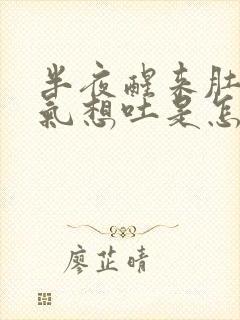 半夜醒来肚
气想吐是怎
廖芷晴